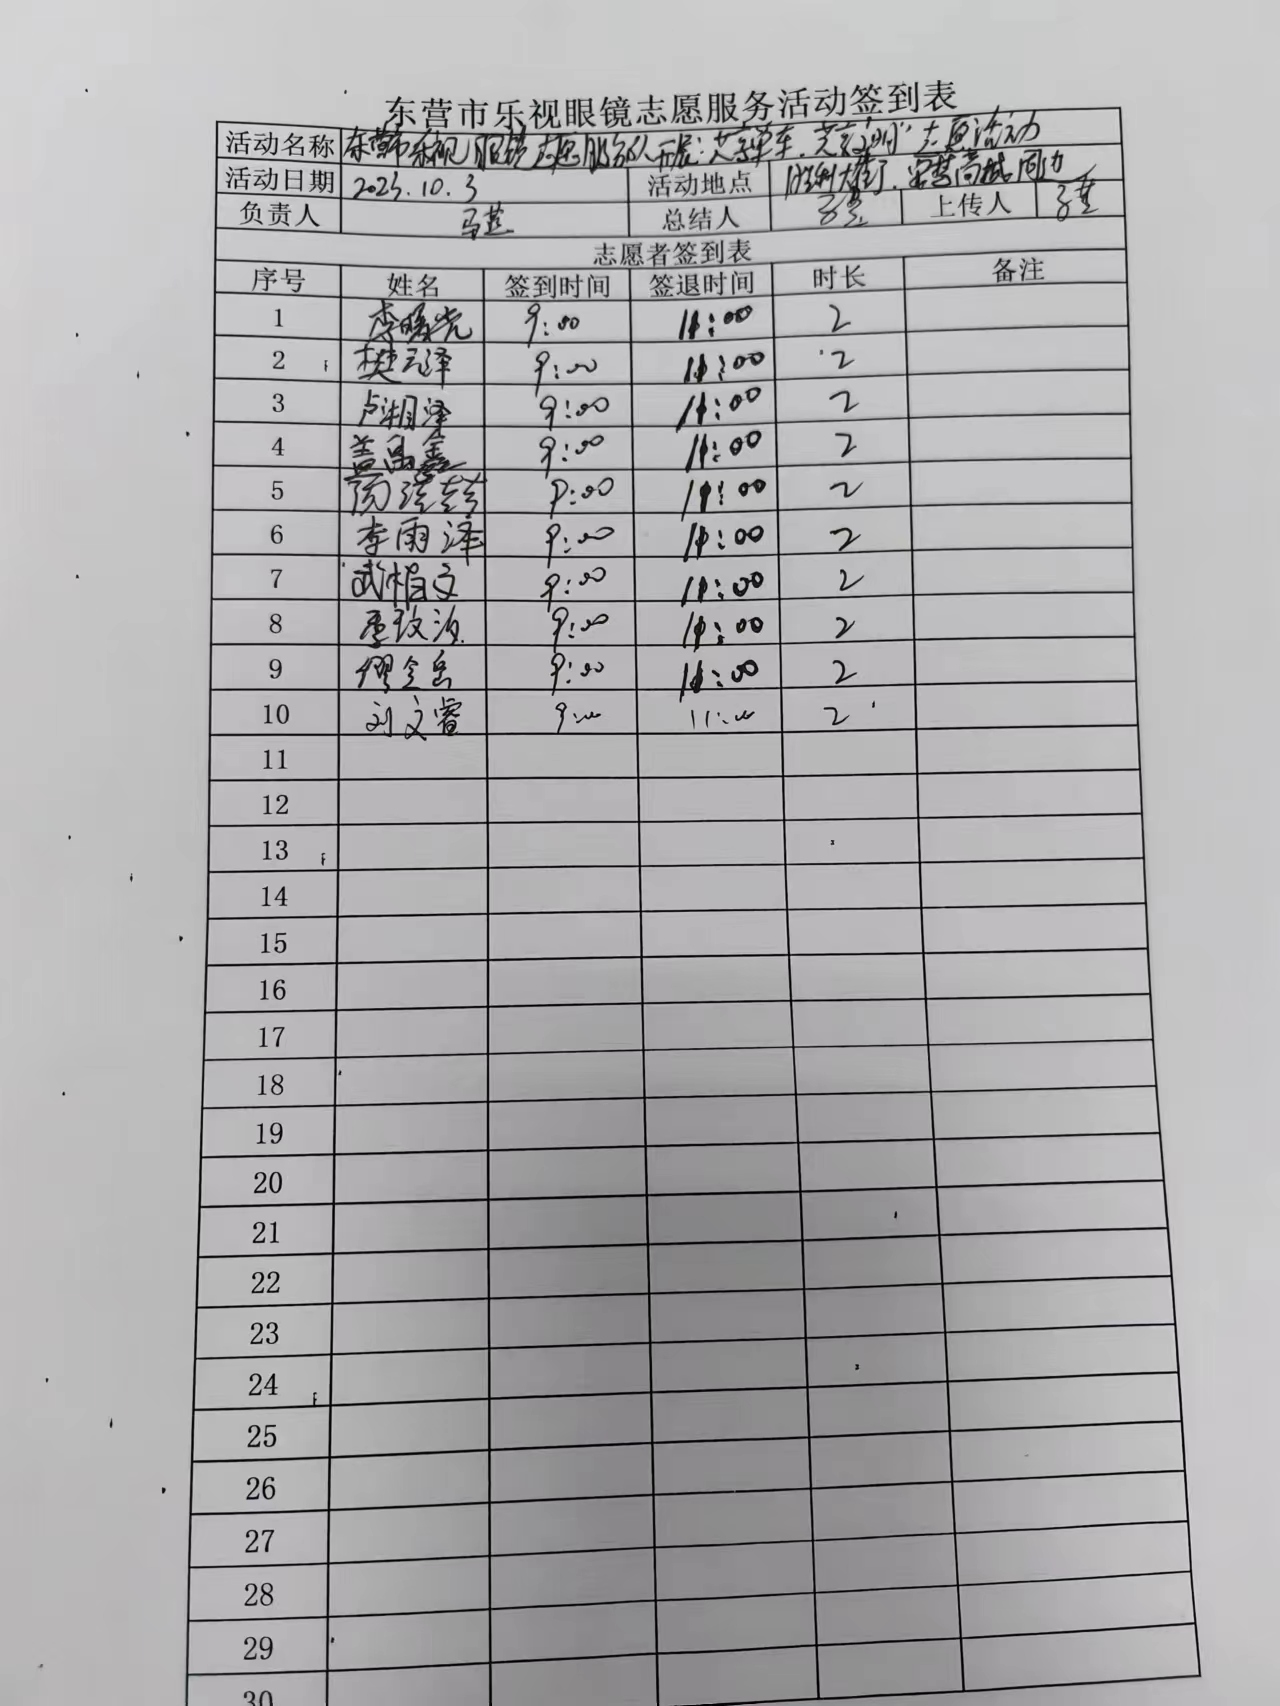 东营市乐视眼镜志愿服务活动签到表
活动名称 东营市乐视眼镜志愿服务队开展:共享单车,共享文明"志愿活动
活动日期 2023.10.3 活动地点 胜利大街
负责人 马 总结人 上传人
志愿者签到表
序号 姓名 签到时间 签退时间 时长 备注
1 李曙光 9:00 11:00 2
2 樊云泽 9:00 11:00 2
3 卢湘泽 9:00 11:00 2
4 盖禹鑫 9:00 11:00 2
5 9:00 11:00 2
6 李雨泽 9:00 11:00 2
7 武楷文 9:00 11:00 2
8 9:00 11:00 2
9 缪金岳 9:00 11:00 2
10 刘文睿 9:00 11:00 2
11
12
13
14
15
16
17
18
19
20
21
22
23
24
25
26
27
28
29
30